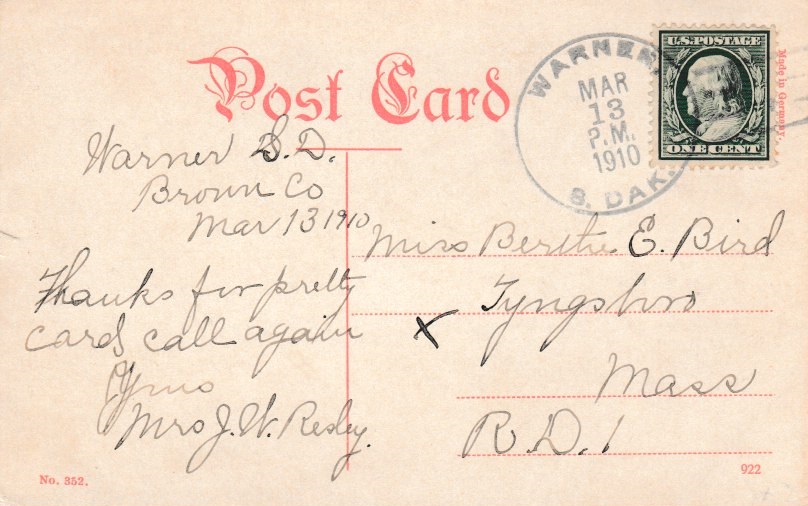 Post Card
WARNER,
MAR
13
P.M.
1910
S. DAK.
U.S. POSTAGE
ONE CENT
Made in Germany.
Warner S.D.
Brown Co
Mar 13 1910
Thanks for pretty
cards call again
Yours
Mrs J. W.
Miss Bertha E. Bird
Tyngsboro
x
Mass
R.D. 1
No. 352.
922